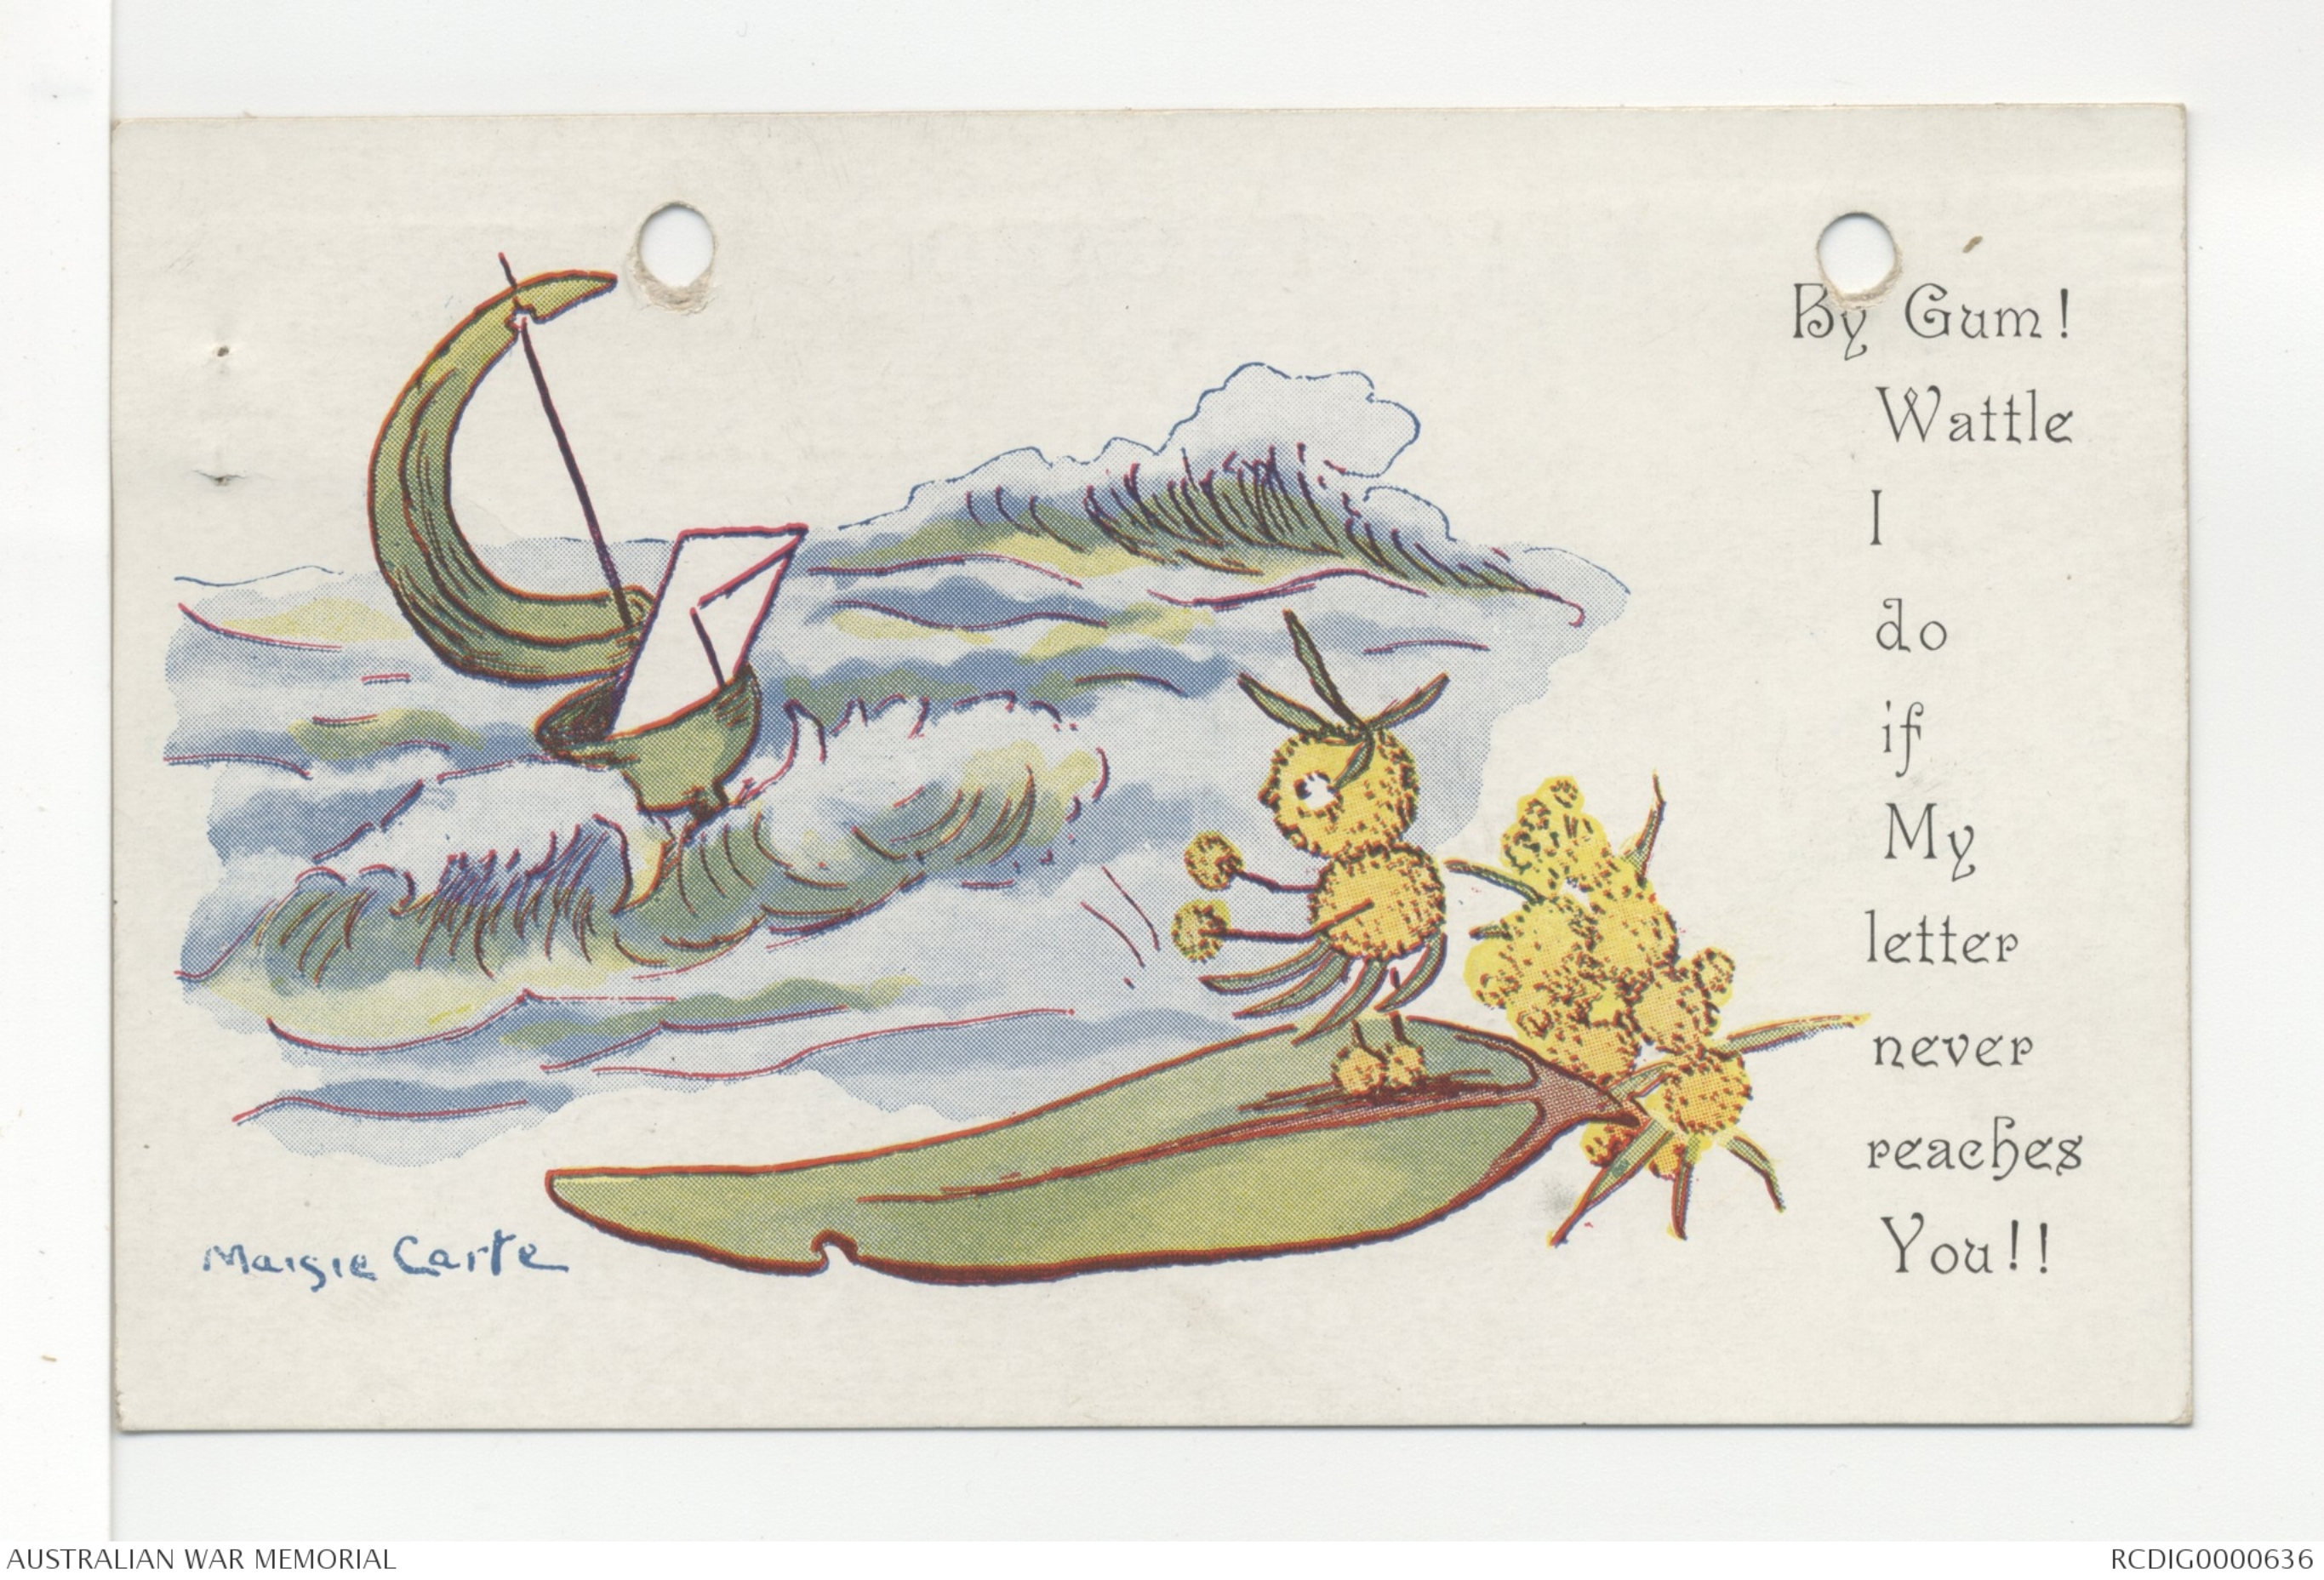 By Gum!
Wattle
I
do
if
My
letter
never
reaches
You!!
Maisie Carte
AUSTRALIAN WAR MEMORIAL
RCDIG0000636